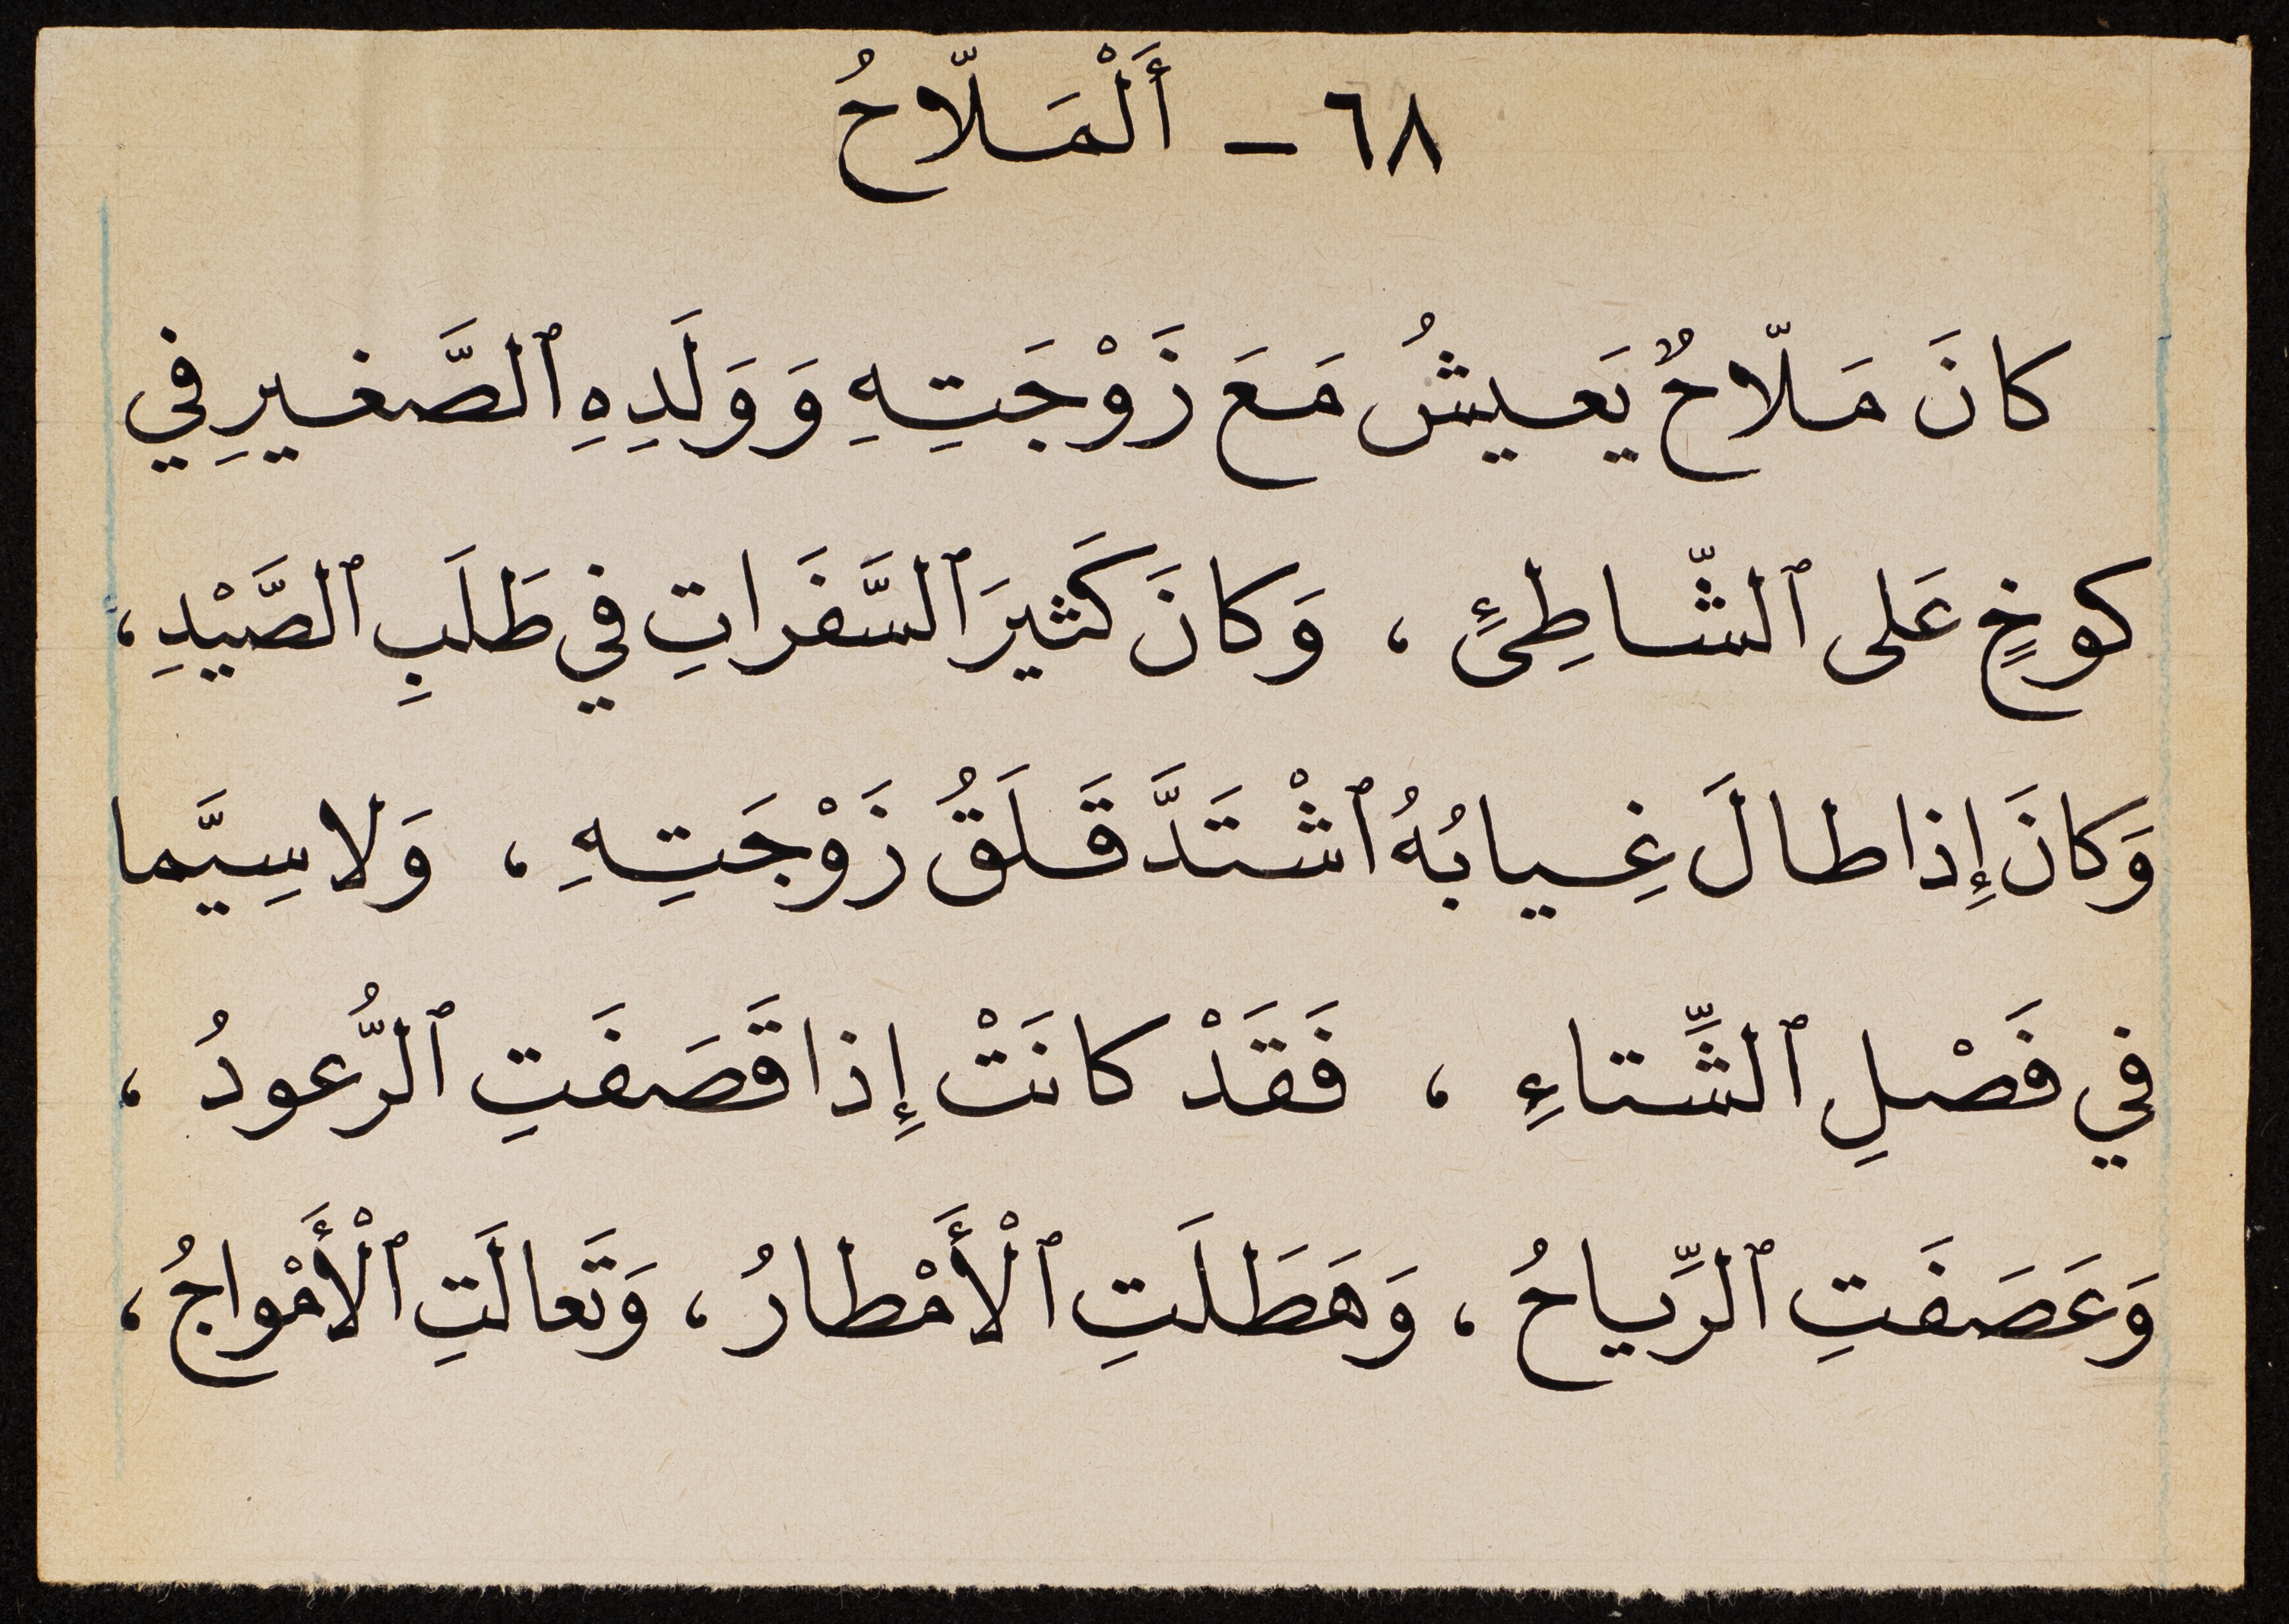 ٦٨ - أَلْمَلّاحُ
كانَ مَلّاحٌ يَعيشُ مَعَ زَوْجَتِهِ وَوَلَدِهِ ٱلصَّغيرِ في
كوخٍ عَلى ٱلشّاطِئِ ، وَكانَ كَثيرَ ٱلسَّفَراتِ في طَلَبِ ٱلصَّيْدِ ،
وَكانَ إِذا طالَ غِيابُهُ ٱشْتَدَّ قَلَقُ زَوْجَتِهِ ، وَلا سِيَّما
في فَصْلِ ٱلشِّتاءِ ، فَقَدْ كانَتْ إِذا قَصَفَتِ ٱلرُّعودُ ،
وَعَصَفَتِ ٱلرِّياحُ ، وَهَطَلَتِ ٱلْأَمْطارُ ، وَتَعالَتِ ٱلْأَمْواجُ ،